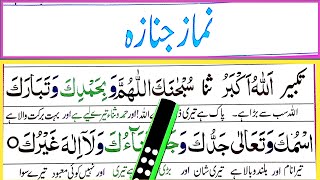 نماز جنازہ
تکبیر اَللّٰهُ اَكْبَرُ ثنا سُبْحٰنَكَ اللّٰهُمَّ وَبِحَمْدِكَ وَتَبَارَكَ
اللہ سب سے بڑا ہے۔ پاک ہے تیری ذات اے اللہ! اور حمد و ثنا تیرے لیے ہے اور بہت برکت والا ہے
اسْمُكَ وَتَعَالٰى جَدُّكَ وَجَلَّ ثَنَاءُكَ وَلَآ اِلٰهَ غَيْرُكَ
تیرا نام اور بلند و بالا ہے تیری شان اور تیری اور نہیں کوئی معبود تیرے سوا